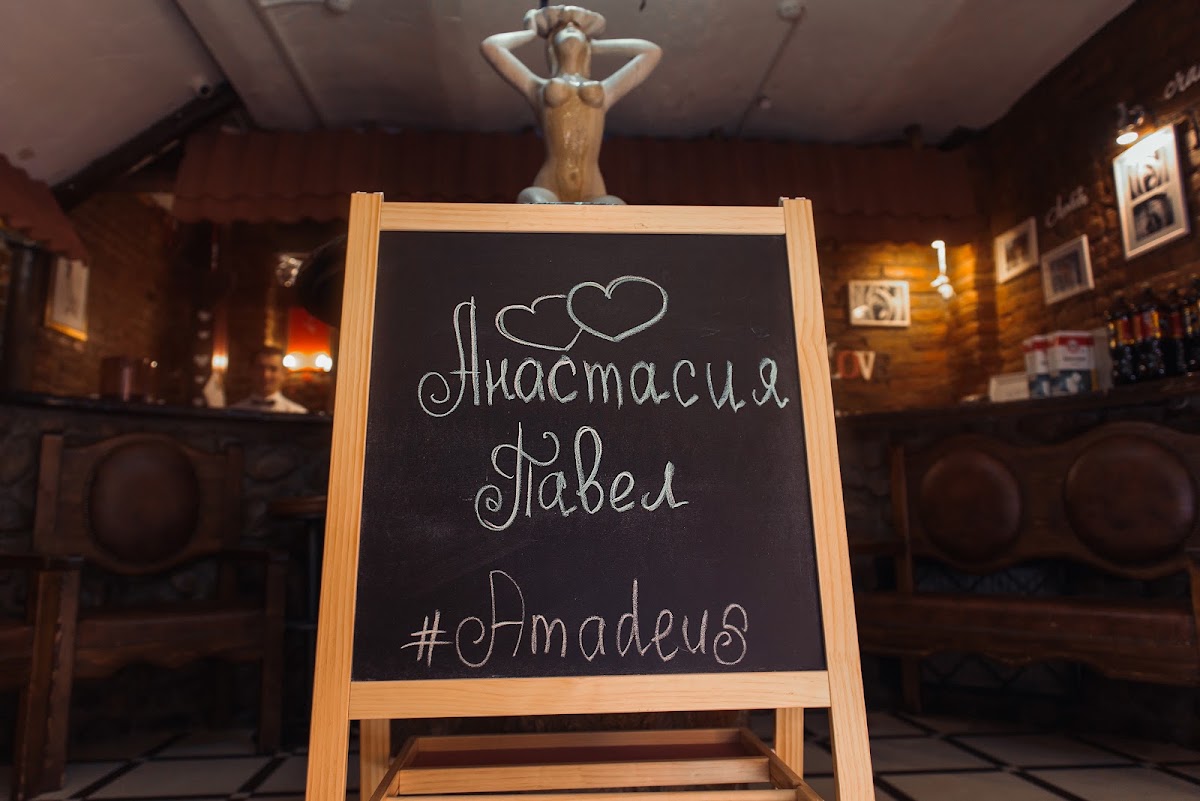 Анастасия
Павел
#Amadeus
LOVE